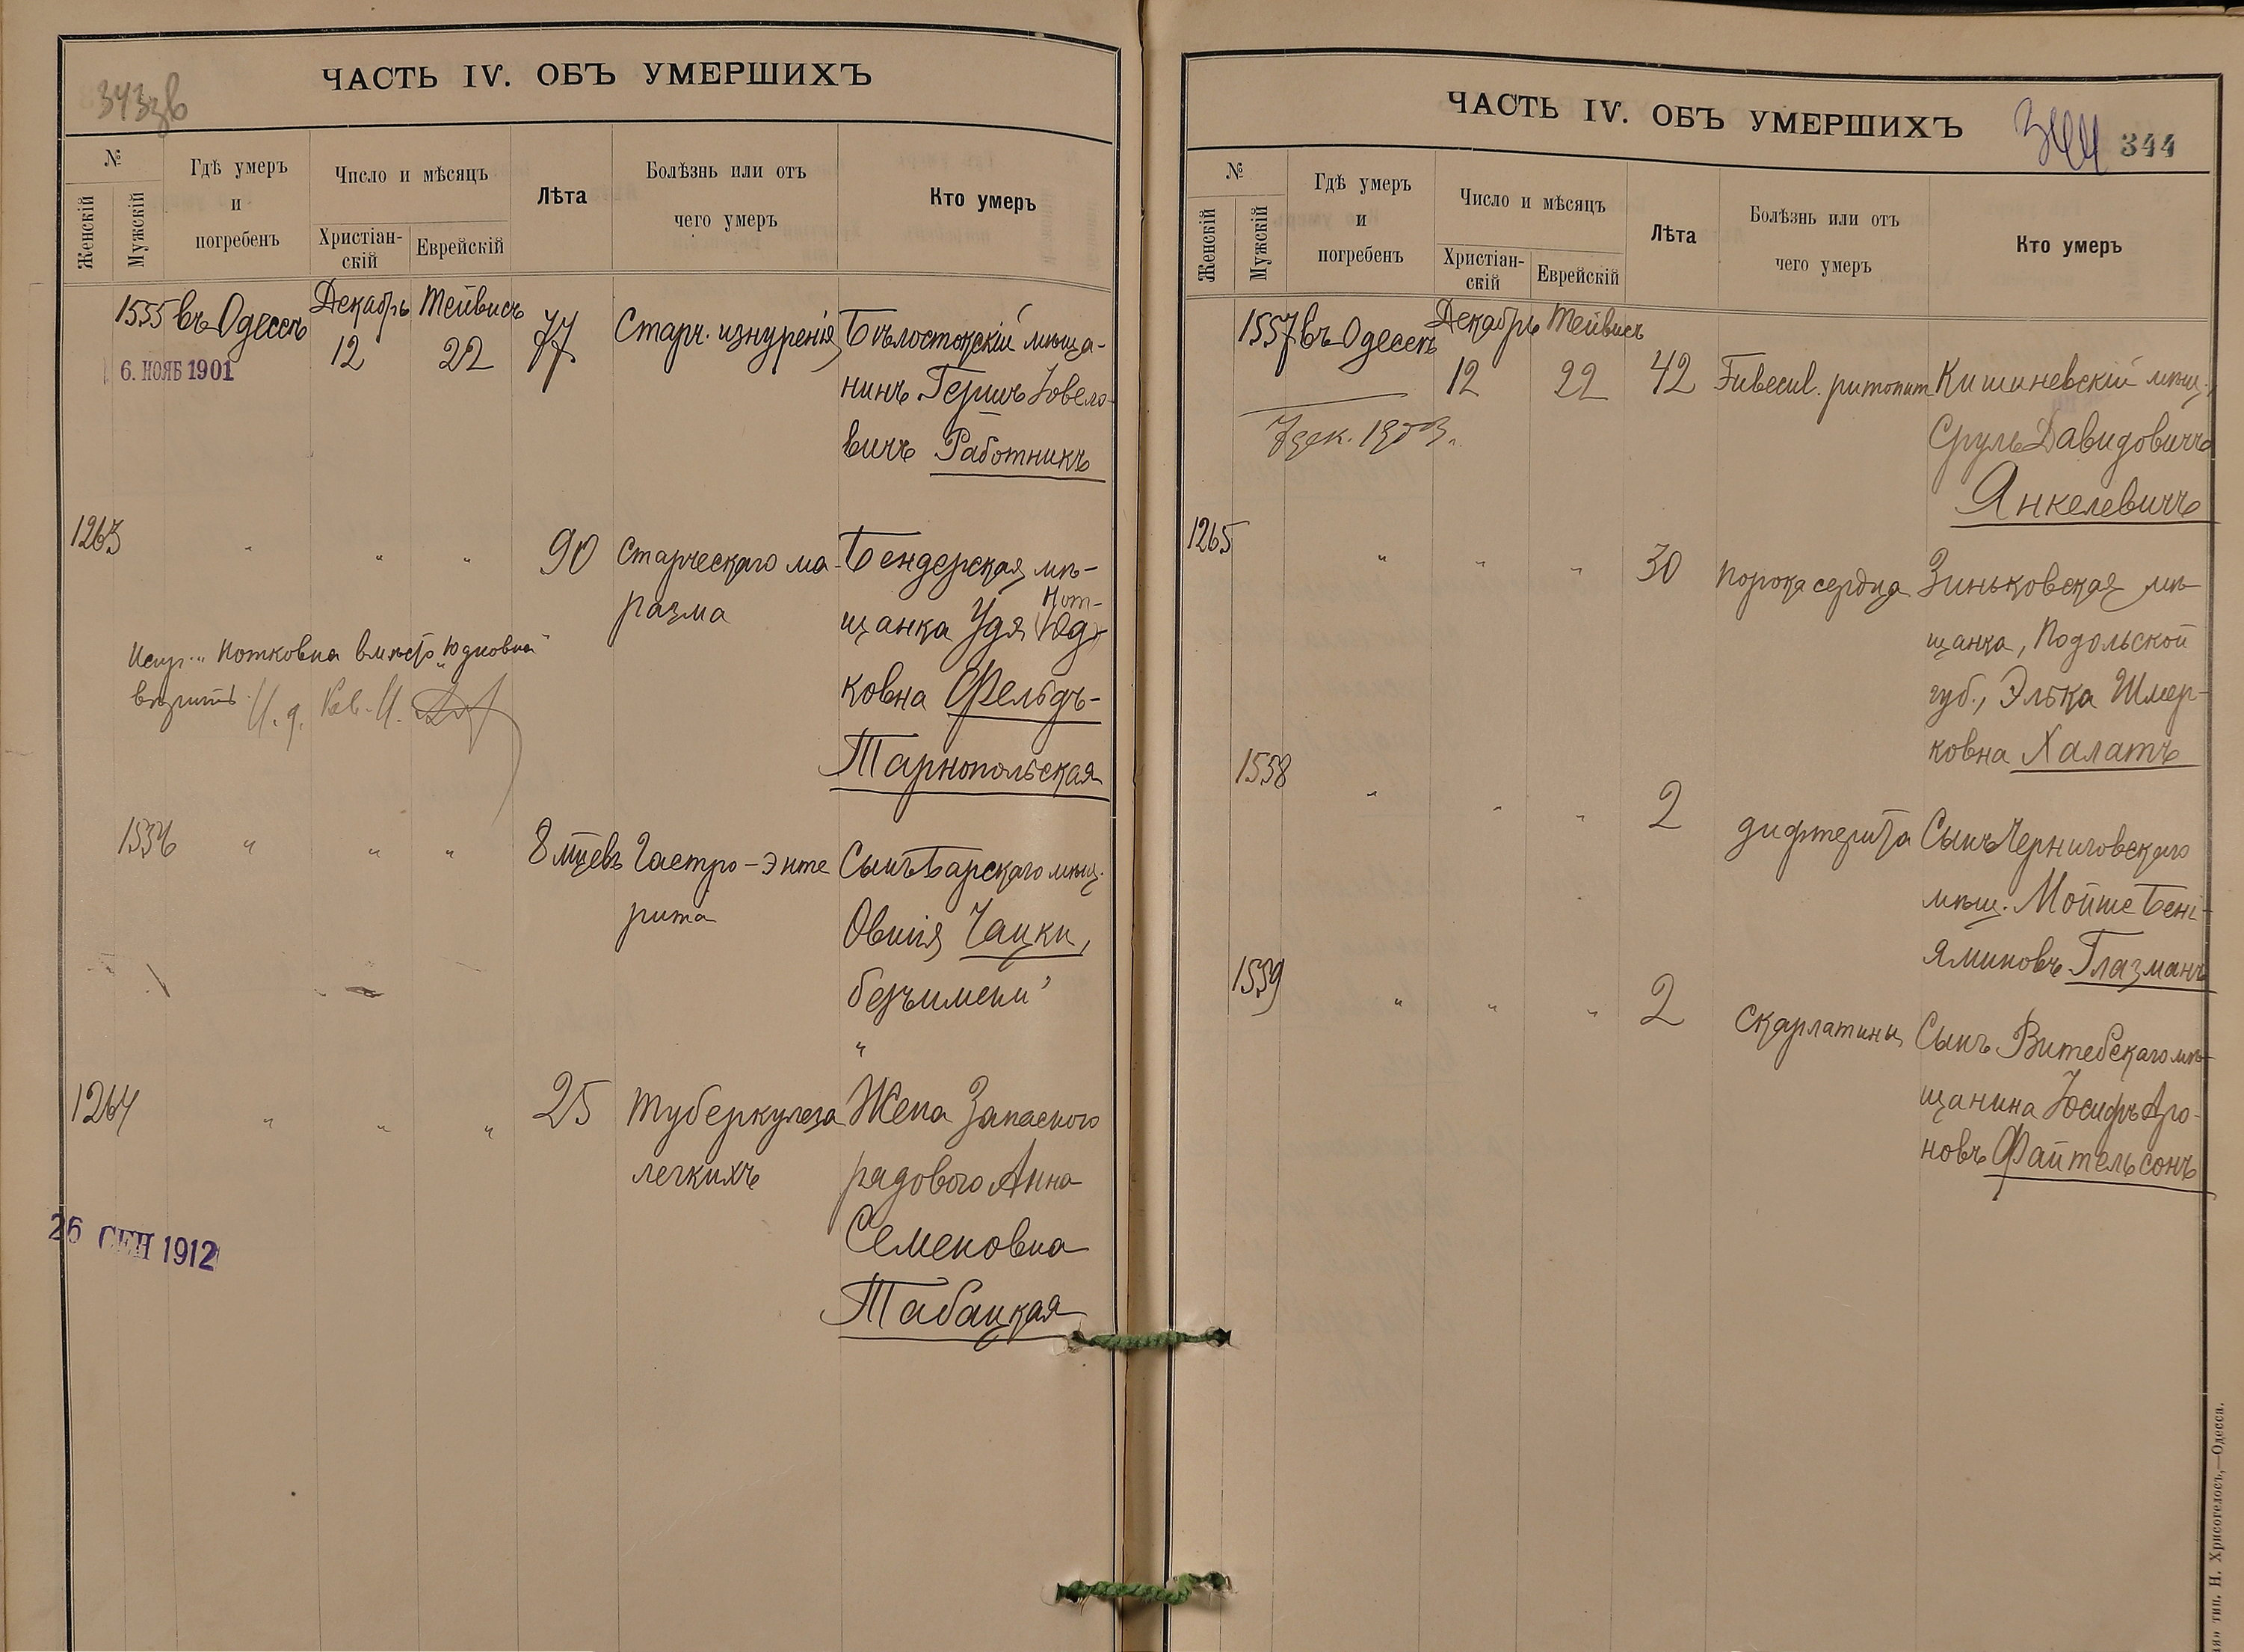 343зв
ЧАСТЬ IV. ОБЪ УМЕРШИХЪ
№
Женскій
Мужскій
Гдѣ умеръ
и
погребенъ
Число и мѣсяцъ
Христіан-
скій
Еврейскій
Лѣта
Болѣзнь или отъ
чего умеръ
Кто умеръ
1555 въ Одессѣ Декабрь 12 Тейвисъ 22 77 Старч. изнуренія Бѣлостокскій мѣща-
нинъ Гершъ Іовело-
вичъ Работникъ
6. НОЯБ 1901
1263 " " " 90 Старческаго ма- Бендерская мѣ-
разма щанка Удя Нот-
ковна Фельдъ-
Тарнопольская
Испр. „Нотковна вмѣсто „Юдковна"
вѣрить И. д.
1556 " " " 8 мцевъ Гастро-энте Сынъ Барскаго мѣщ.
рита Овшія Чацки,
безъимени
"
1264 " " " 25 Туберкулеза Жена Запаснаго
легкихъ рядового Анна
Семеновна
Табацкая
26 СЕН 1912
ЧАСТЬ IV. ОБЪ УМЕРШИХЪ
344 344
№
Женскій
Мужскій
Гдѣ умеръ
и
погребенъ
Число и мѣсяцъ
Христіан-
скій
Еврейскій
Лѣта
Болѣзнь или отъ
чего умеръ
Кто умеръ
1557 въ Одессѣ Декабрь 12 Тейвисъ 22 42 Кишиневскій мѣщ.
Сруль Давидовичъ
Янкелевичъ
7 дек. 1903 г.
1265 " " " 30 порока сердца Зиньковская мѣ-
щанка, Подольской
губ., Элька Шмер-
ковна Халатъ
1558 " " " 2 дифтерита Сынъ Черниговскаго
мѣщ. Мойше Бені-
яминовъ Глазманъ
1559 " " " 2 скарлатины Сынъ Витебскаго мѣ-
щанина Іосифъ Аро-
новъ Файтельсонъ
тип. Н. Хрисогелосъ,—Одесса.